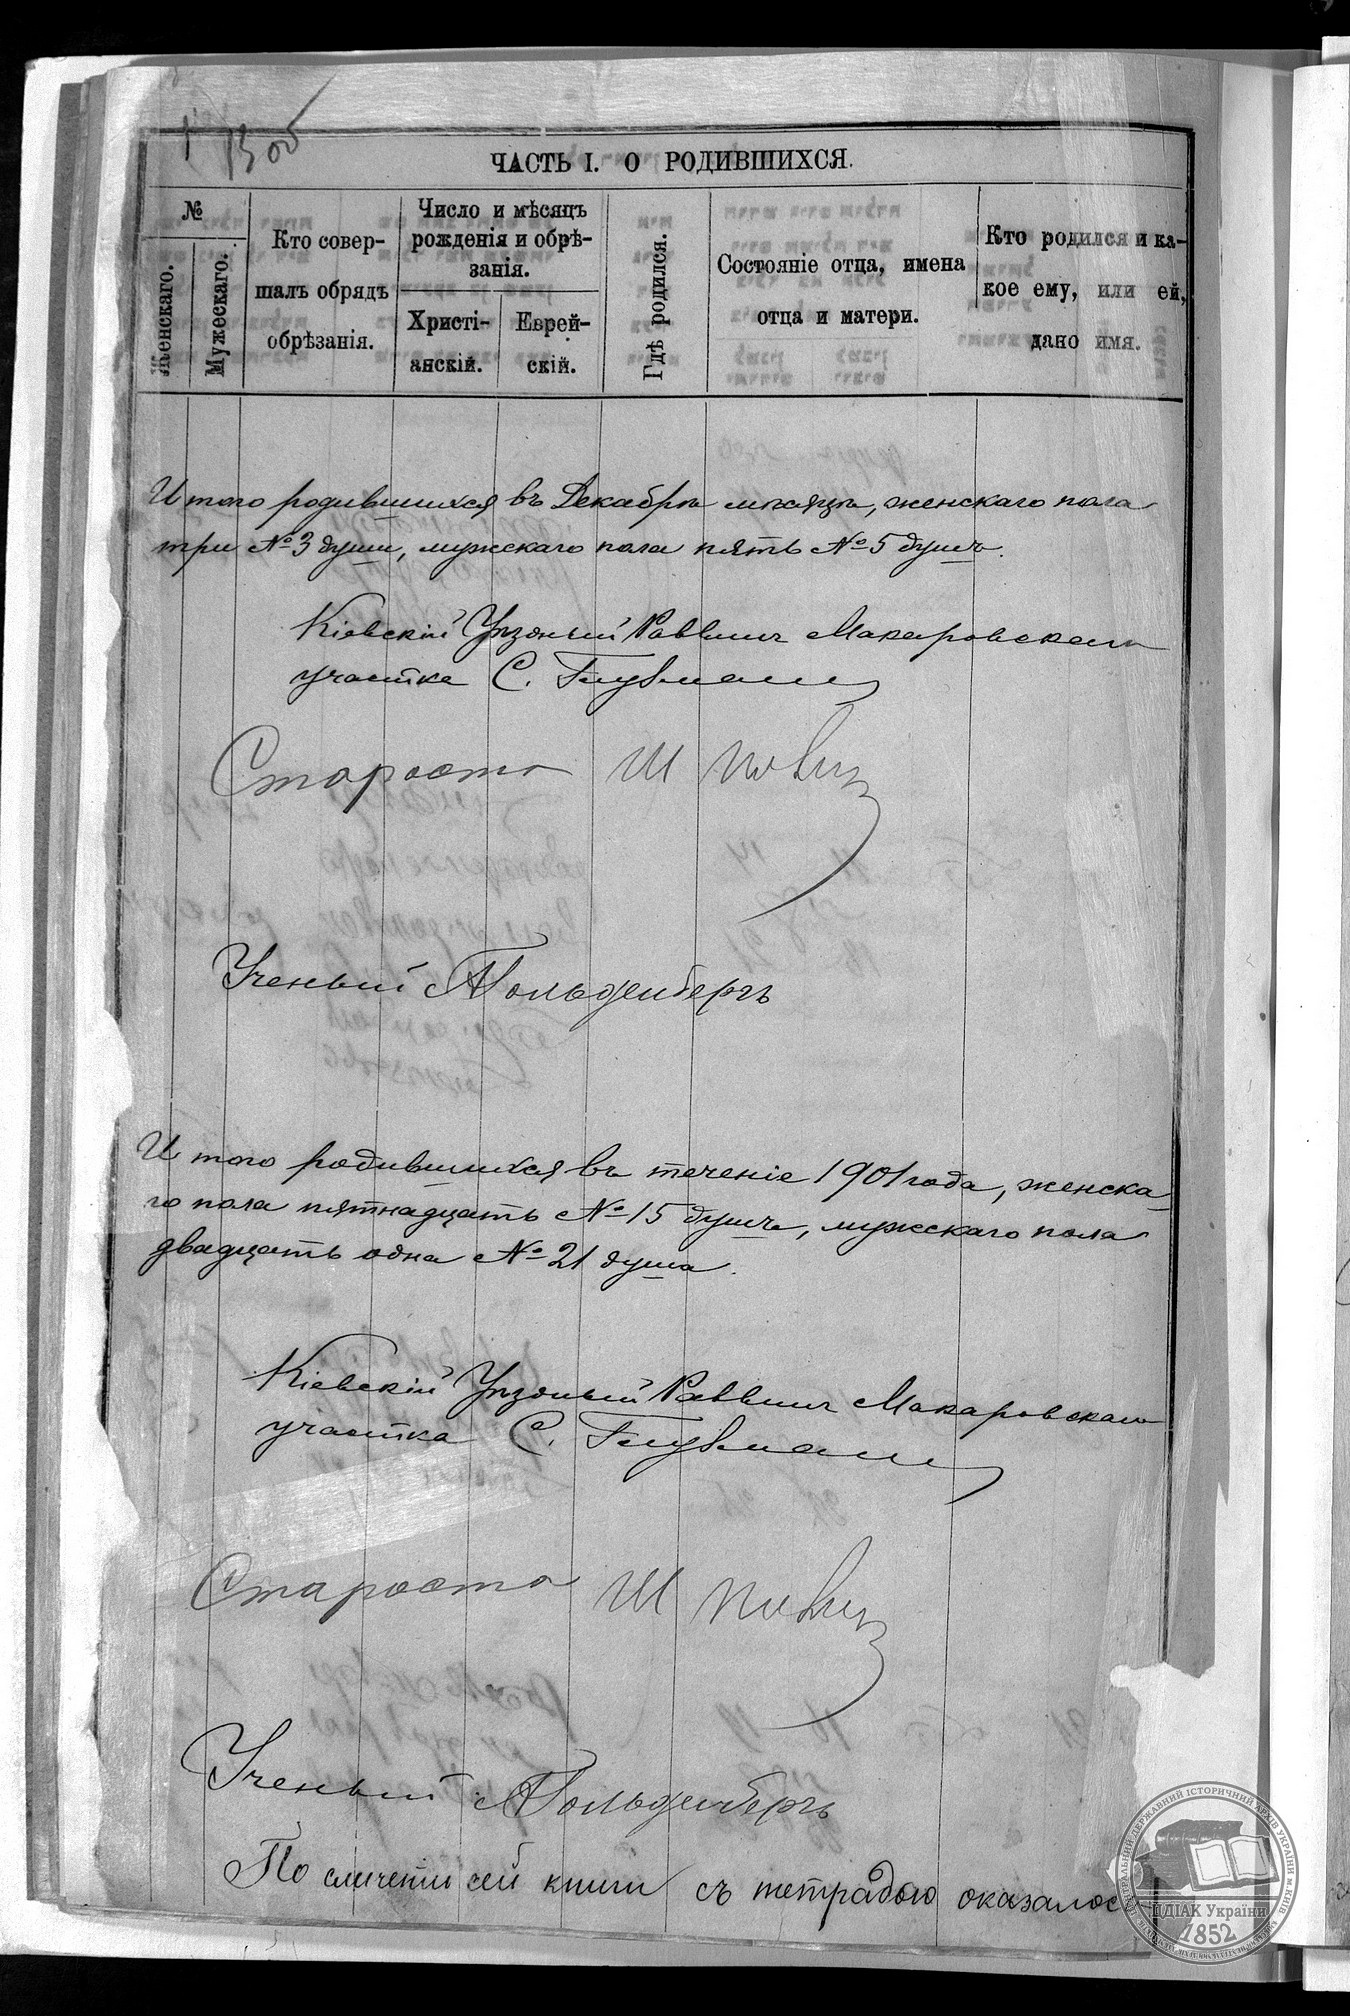 ЧАСТЬ I. О РОДИВШИХСЯ.
№
Женскаго.
Мужескаго.
Кто совер-
шалъ обрядъ
обрѣзанія.
Число и мѣсяцъ
рожденія и обрѣ-
занія.
Христі-
анскій.
Еврей-
скій.
Гдѣ родился.
Состояніе отца, имена
отца и матери.
Кто родился и ка-
кое ему, или ей,
дано имя.
И того родившихся въ Декабрѣ мѣсяцѣ, женскаго пола
три № 3 души, мужскаго пола пять № 5 душъ.
Кіевскій Уѣздный Раввинъ Макаровскаго
участка С.
Староста Ш
Ученый А Гольденбергъ
И того родившихся въ теченіе 1901 года, женска
го пола пятнадцать № 15 душъ, мужскаго пола
двадцать одна № 21 душа.
Кіевскій Уѣздный Раввинъ Макаровскаго
участка С.
Староста Ш
Ученый А Гольденбергъ
По сличеніи сей книги съ тетрадью оказалос
ЦЕНТРАЛЬНИЙ ДЕРЖАВНИЙ ІСТОРИЧНИЙ АРХІВ УКРАЇНИ м. КИЇВ
ЦДІАК України
1852